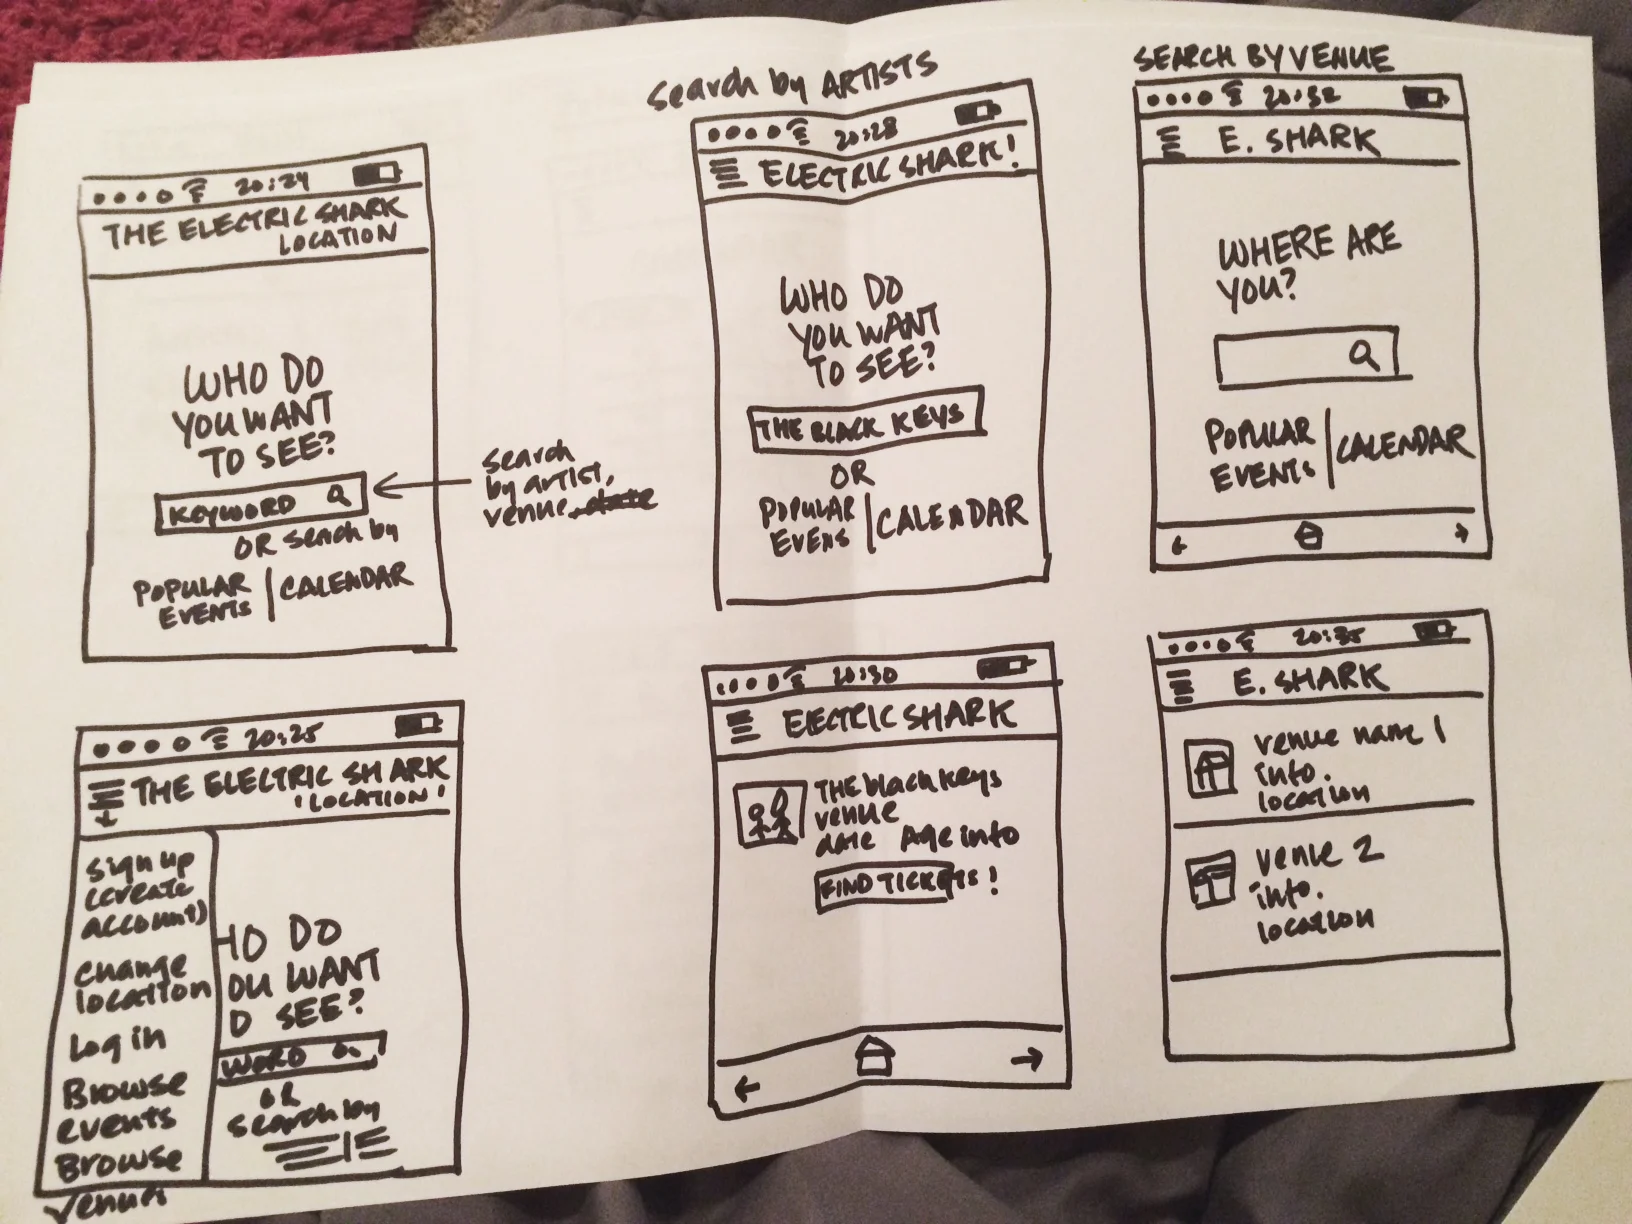 20:24
THE ELECTRIC SHARK
LOCATION
WHO DO
YOU WANT
TO SEE?
KEYWORD
OR search by
POPULAR
EVENTS
CALENDAR
search
by artist,
venue, date
20:25
THE ELECTRIC SHARK
'LOCATION'
sign up
(create
account)
change
location
Log in
Browse
events
Browse
venues
HO DO
OU WANT
O SEE?
WORD
OR
search by
Search by ARTISTS
20:28
ELECTRIC SHARK!
WHO DO
YOU WANT
TO SEE?
THE BLACK KEYS
OR
POPULAR
EVENS
CALENDAR
20:30
ELECTRIC SHARK
THE black keys
venue
date Age info
FIND TICKETS!
SEARCH BY VENUE
20:32
E. SHARK
WHERE ARE
YOU?
POPULAR
EVENTS
CALENDAR
20:35
E. SHARK
venue name 1
info.
location
venue 2
info.
location